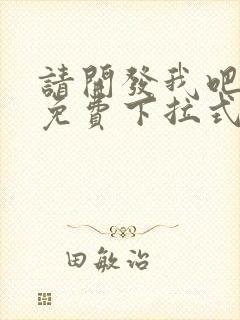 請開發我吧
免費下拉式
田敏治